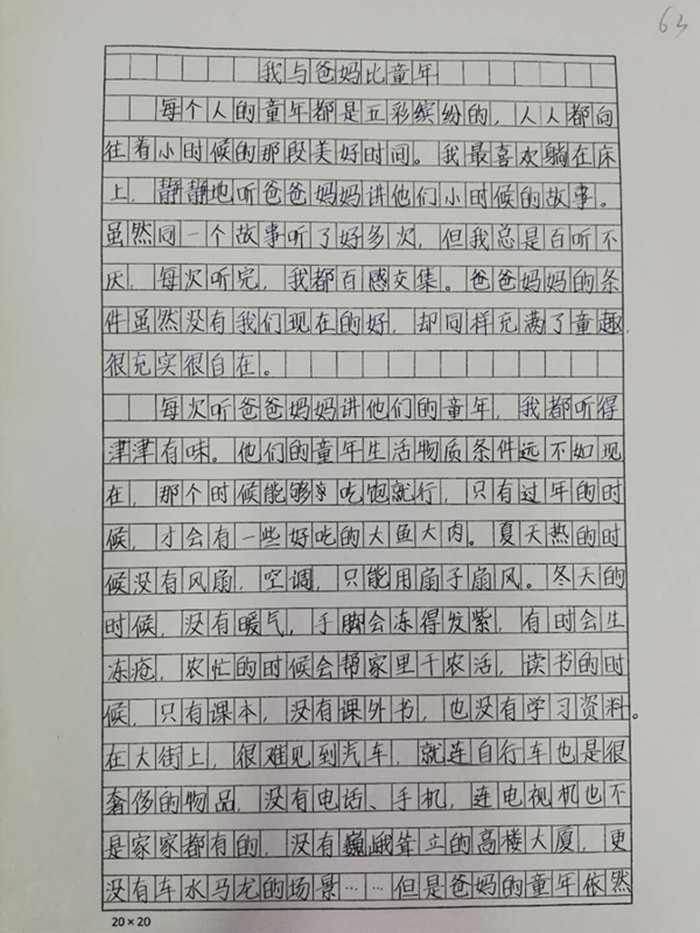 63
我与爸妈比童年
每个人的童年都是五彩缤纷的，人人都向
往着小时候的那段美好时间。我最喜欢躺在床
上，静静地听爸爸妈妈讲他们小时候的故事。
虽然同一个故事听了好多次，但我总是百听不
厌，每次听完，我都百感交集。爸爸妈妈的条
件虽然没有我们现在的好，却同样充满了童趣，
很充实很自在。
每次听爸爸妈妈讲他们的童年，我都听得
津津有味。他们的童年生活物质条件远不如现
在，那个时候能够吃饱就行，只有过年的时
候，才会有一些好吃的大鱼大肉。夏天热的时
候没有风扇，空调，只能用扇子扇风。冬天的
时候，没有暖气，手脚会冻得发紫，有时会生
冻疮，农忙的时候会帮家里干农活，读书的时
候，只有课本，没有课外书，也没有学习资料。
在大街上，很难见到汽车，就连自行车也是很
奢侈的物品，没有电话、手机，连电视机也不
是家家都有的，没有巍峨耸立的高楼大厦，更
没有车水马龙的场景……但是爸妈的童年依然
20×20